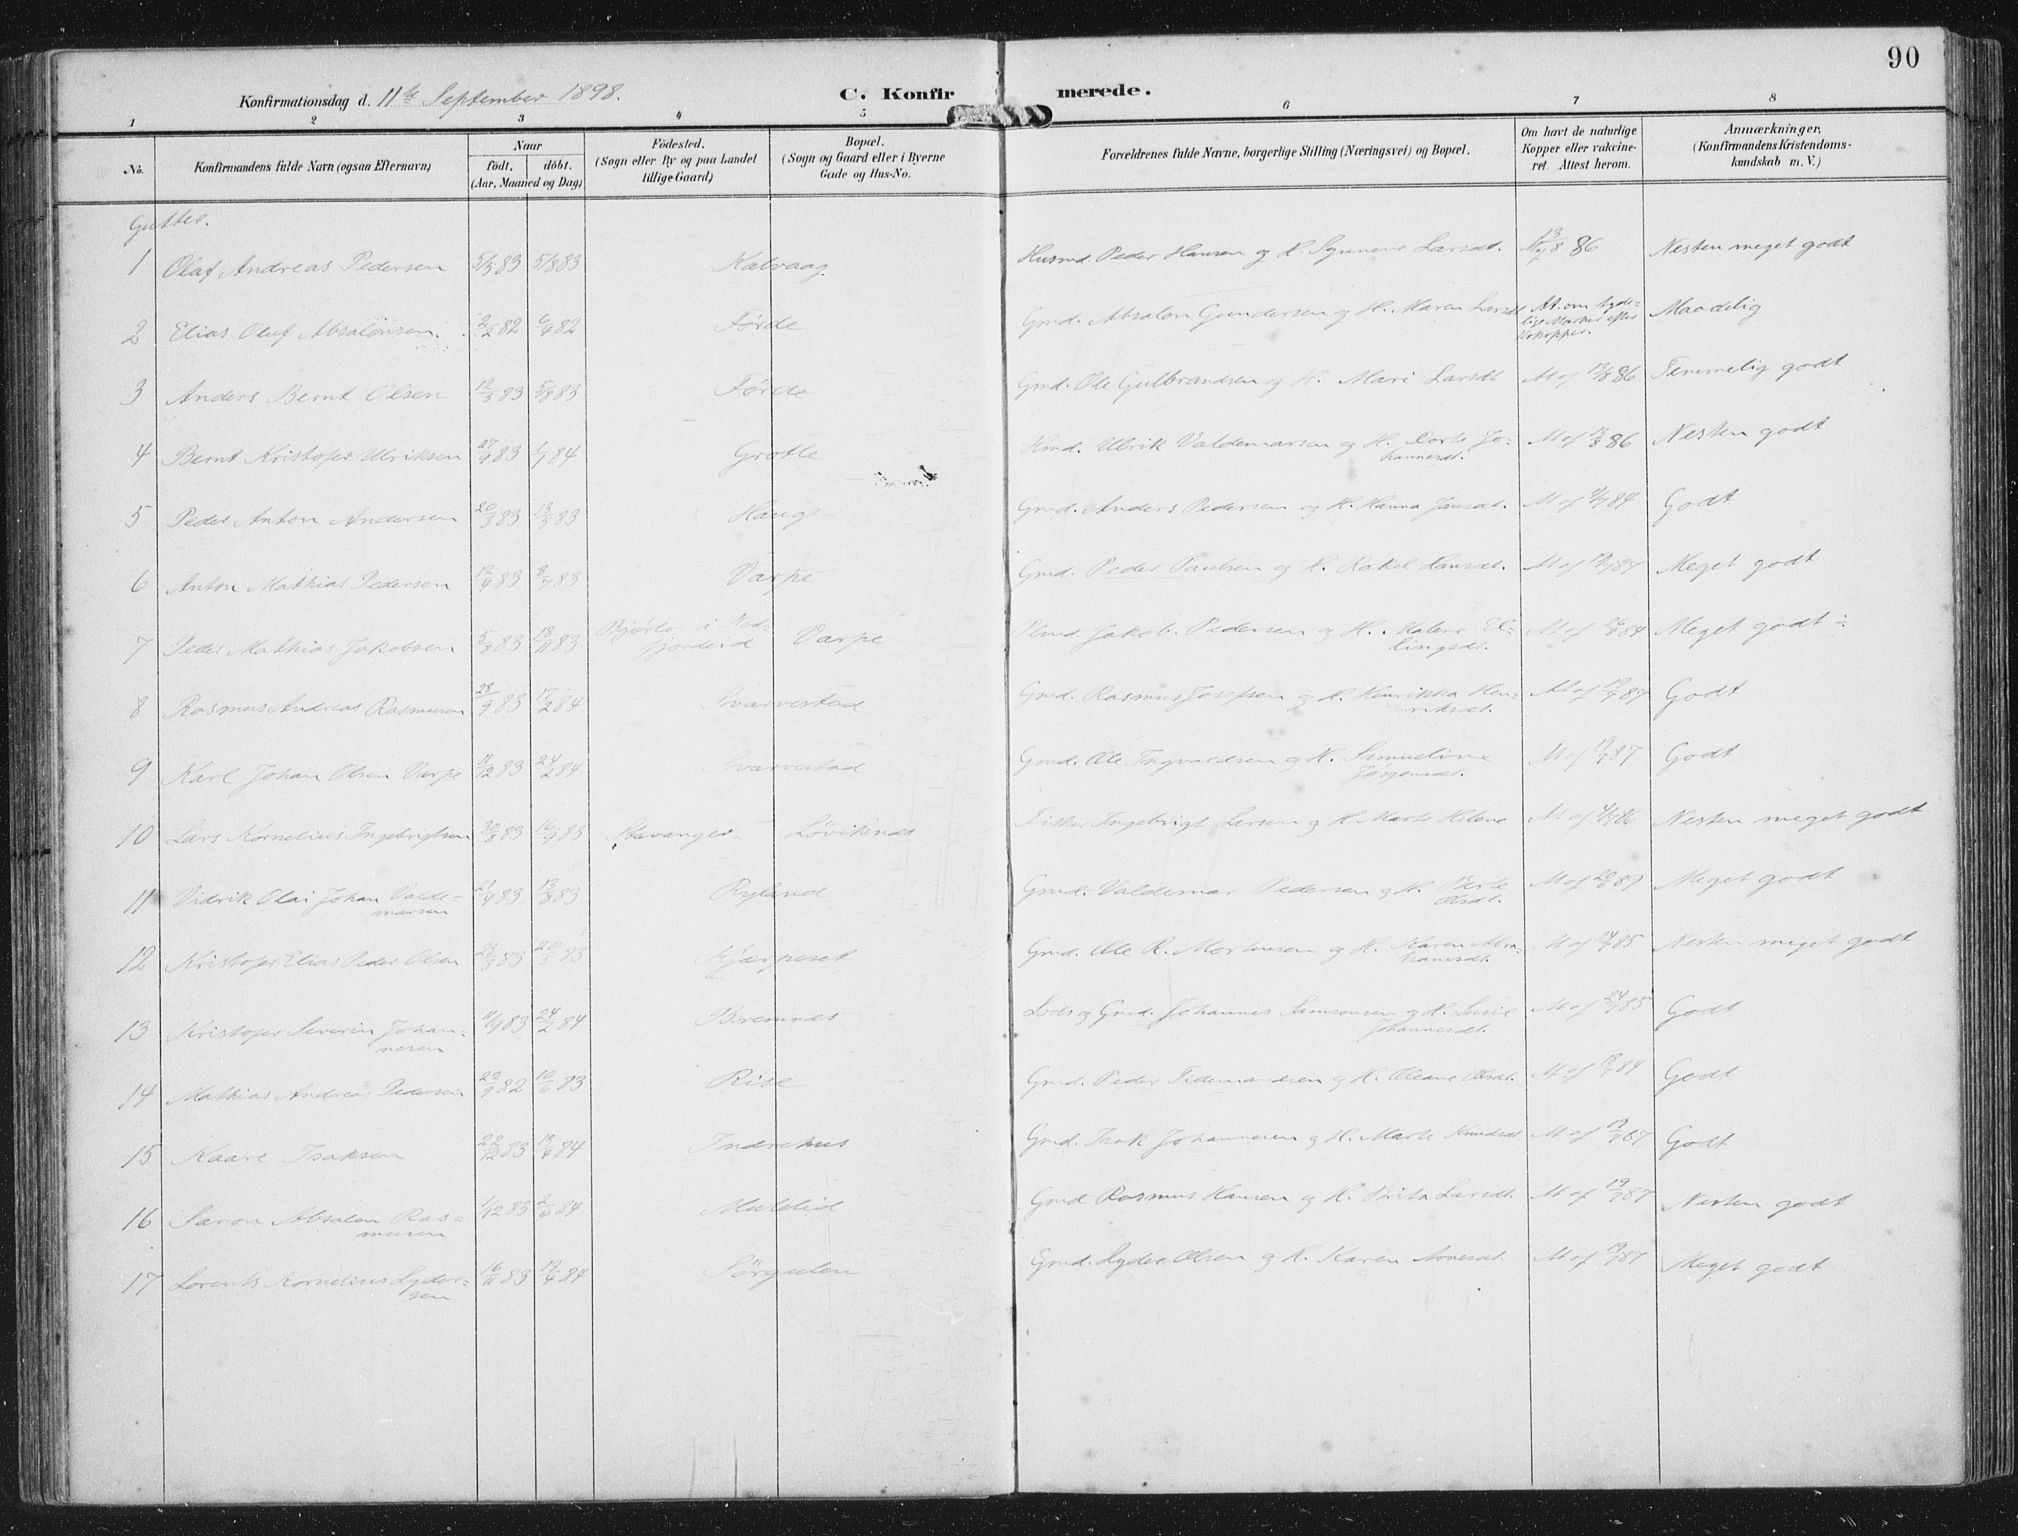 90
Konfirmationsdag d. 11te September 1898. C. Konfirmerede.
1 2 3 4 5 6 7 8
No. Konfirmandens fulde Navn (ogsaa Efternavn) Naar födt, döbt. (Aar, Maaned og Dag) Födested. (Sogn eller By og paa Landet tillige Gaard) Bopæl. (Sogn og Gaard eller i Byerne Gade og Hus-No. Forældrenes fulde Navne, borgerlige Stilling (Næringsvei) og Bopæl. Om havt de naturlige Kopper eller vakcineret. Attest herom. Anmærkninger. (Konfirmandens Kristendomskundskab m. V.)
Gutter.
1 Olaf Andreas Pedersen 5/5 83 5/8 83 Kalvaag Husmd. Peder Hansen og H. Larsdt. 86 Nesten meget godt
2 Elias Oluf Absalonsen 2/2 82 6/4 82 Førde Gmd. Absalon Gundersen og H. Maren Larsdt At. om tydelige Mærker efter Kokopper. Maadelig
3 Anders Bernt Olsen 12/5 83 5/8 83 Førde Gmd. Ole Gulbrandsen og H. Mari Larsdt At af 13/8 86 Temmelig godt
4 Bernt Kristofer Ulriksen 27/9 83 1/1 84 Grotle Hmd. Ulrik Valdemarsen og H. Dorte Johannesdt. At af 13/8 86 Nesten godt
5 Peder Anton Andersen 20/3 83 13/5 83 Hauge Gmd. Anders Pedersen og H. Hanna Jansdt. At af 84 Godt
6 Anton Mathias Pedersen 12/4 83 8/7 83 Varpe Gmd. Peder Paulsen og H. Rakel Hansdt. At af Meget godt
7 Peder Mathias Jakobsen 5/3 83 18/11 83 Varpe Jakob Pedersen og H. Malene Ellingsdt. At af 84 Meget godt ÷
8 Rasmus Andreas Rasmusen 28/9 83 17/2 84 Svarvestad Gmd. Rasmus Josefsen og H. Henrikka Henriksdt. At af 19/7 87 Godt
9 Karl Johan Olsen Varpe 11/12 83 24/2 84 Svarvestad Gmd. Ole Ingvaldsen og H. Samueline Jørgensdt. At af 19/7 87 Godt
10 Lars Kornelius Ingebrigtsen 30/8 83 16/9 83 Stavanger Løviknes Fisker Ingebrigt Larsen og H. Marte Helene At af 86 Nesten meget godt
11 Vidrik Olai Johan Valdemarsen 21/4 83 13/5 83 Rylend Gmd. Valdemar Pedersen og H. Berte Olsdt. At af 87 Meget godt
12 Kristofer Elias Peder Olsen 23/3 83 20/5 83 Kjærpeset Gmd. Ole R. Mortensen og H. Karen Abrahamsdt. At af 85 Nesten meget godt
13 Kristofer Severin Johannesen 11/9 83 24/2 84 Bremnes Lods og Gmd. Johannes Samsonsen og H. Johannesdt. At af 85 Godt
14 Mathias Andreas Pedersen 22/9 82 10/6 83 Rise Gmd. Peder Tidemandsen og H. Oleane Olsdt. At af 84 Godt
15 Kaare Isaksen 22/12 83 13/4 84 Indrehus Gmd. Isak Johannesen og H. Marte Knudsdt At af 19/7 87 Godt
16 Saron Absalon Rasmusen 1/12 83 2/6 84 Maletid Gmd. Rasmus Hansen og H. Brita Larsdt. At af 19/7 87 Nesten godt
17 Lorents Kornelius Lydersen 16/11 83 13/4 84 Sørgulen Gmd. Lyder Olsen og H. Karen Arnesdt. At af 19/7 87 Meget godt